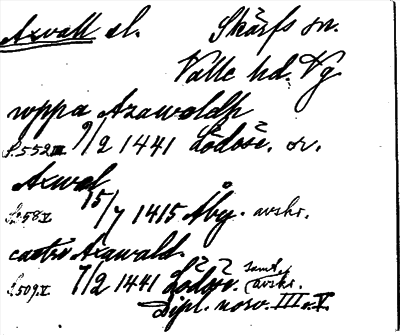 Axvall sl. Skärfs sn.
Valle hd. Vg
uppa Axawaldh
S. 552 III 9/2 1441 Lödöse. or.
Axwal
S. 58 V 15/7 1415 Åby. avskr.
castri Axawald.
S. 509 V 7/2 1441 Lödöse. samt. avskr.
Dipl. norv. III o. V.